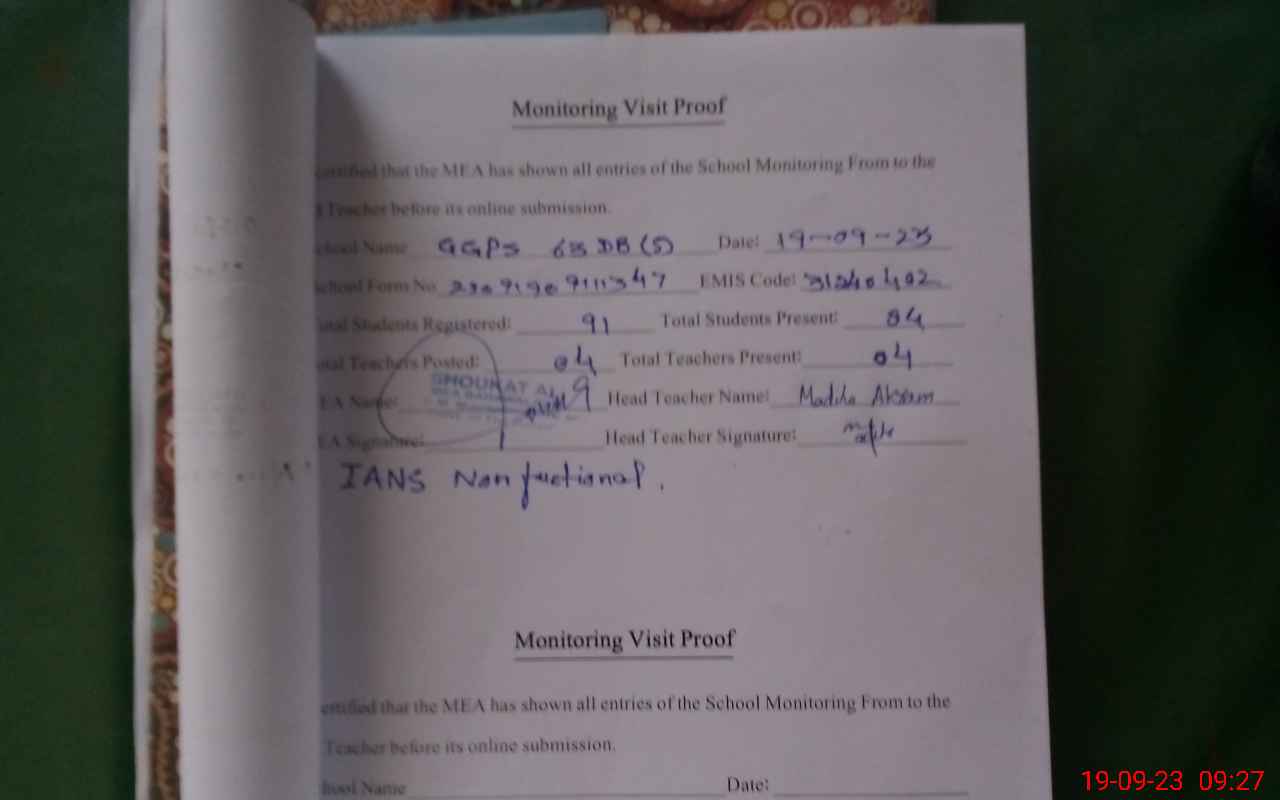 Monitoring Visit Proof
ertified that the MEA has shown all entries of the School Monitoring From to the
Teacher before its online submission.
chool Name GGPS 63 DB (S) Date: 19-09-23
School Form No EMIS Code: 31240402
otal Students Registered: 91 Total Students Present: 84
otal Teachers Posted: 04 Total Teachers Present: 04
EA Name: SHOUKAT ALI Head Teacher Name: Madiha Akram
EA Signature: Head Teacher Signature:
IANS Non fuctional.
Monitoring Visit Proof
ertified that the MEA has shown all entries of the School Monitoring From to the
Teacher before its online submission.
hool Name Date:
19-09-23 09:27